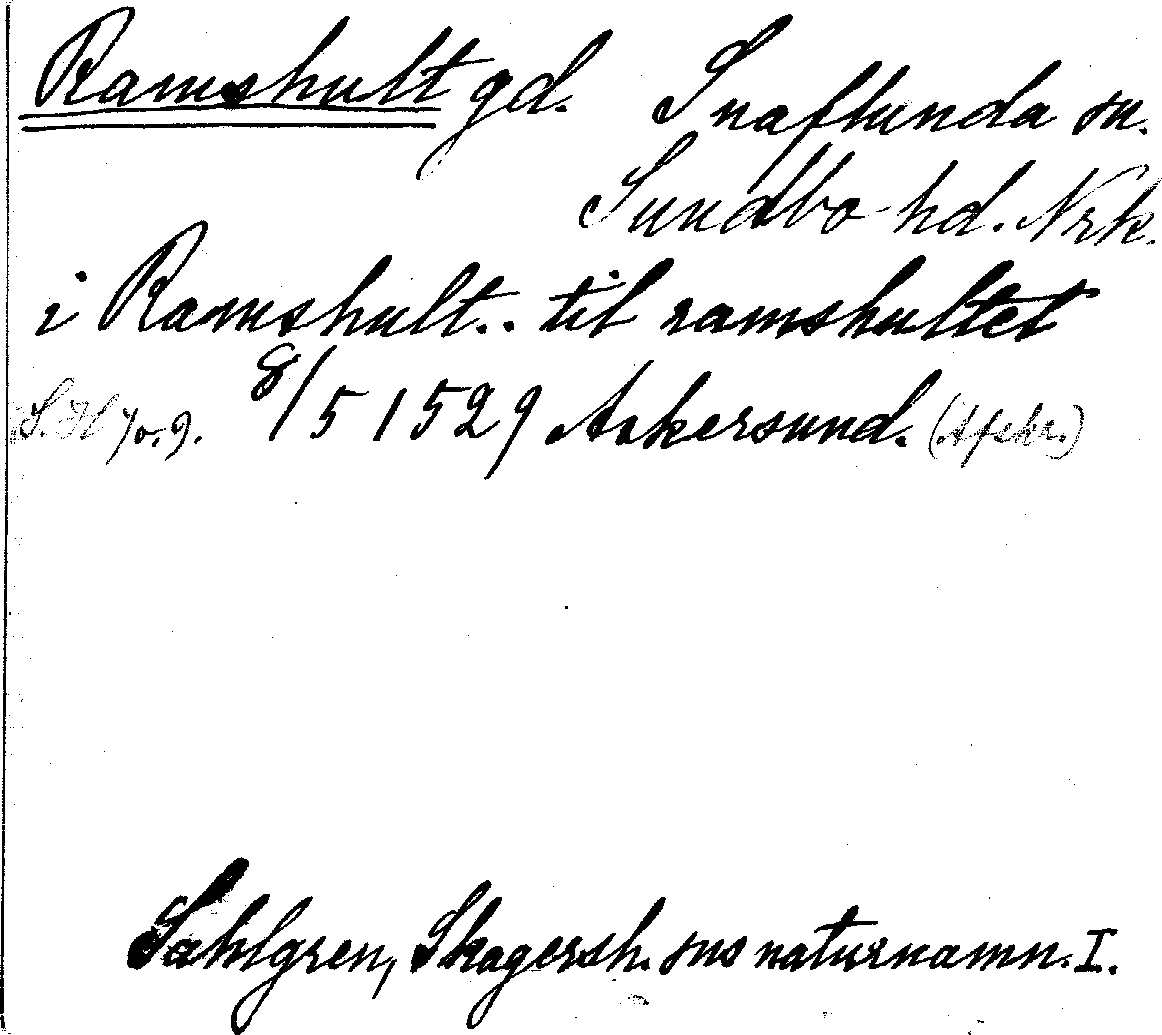 Ramshult gd. Snaflunda sn.
Sundbo hd. Nrk.
i Ramshult.. til ramshultet
8/5 1529 Askersund. (Afskr.)
Sahlgren, Skagersh. sns naturnamn. I.